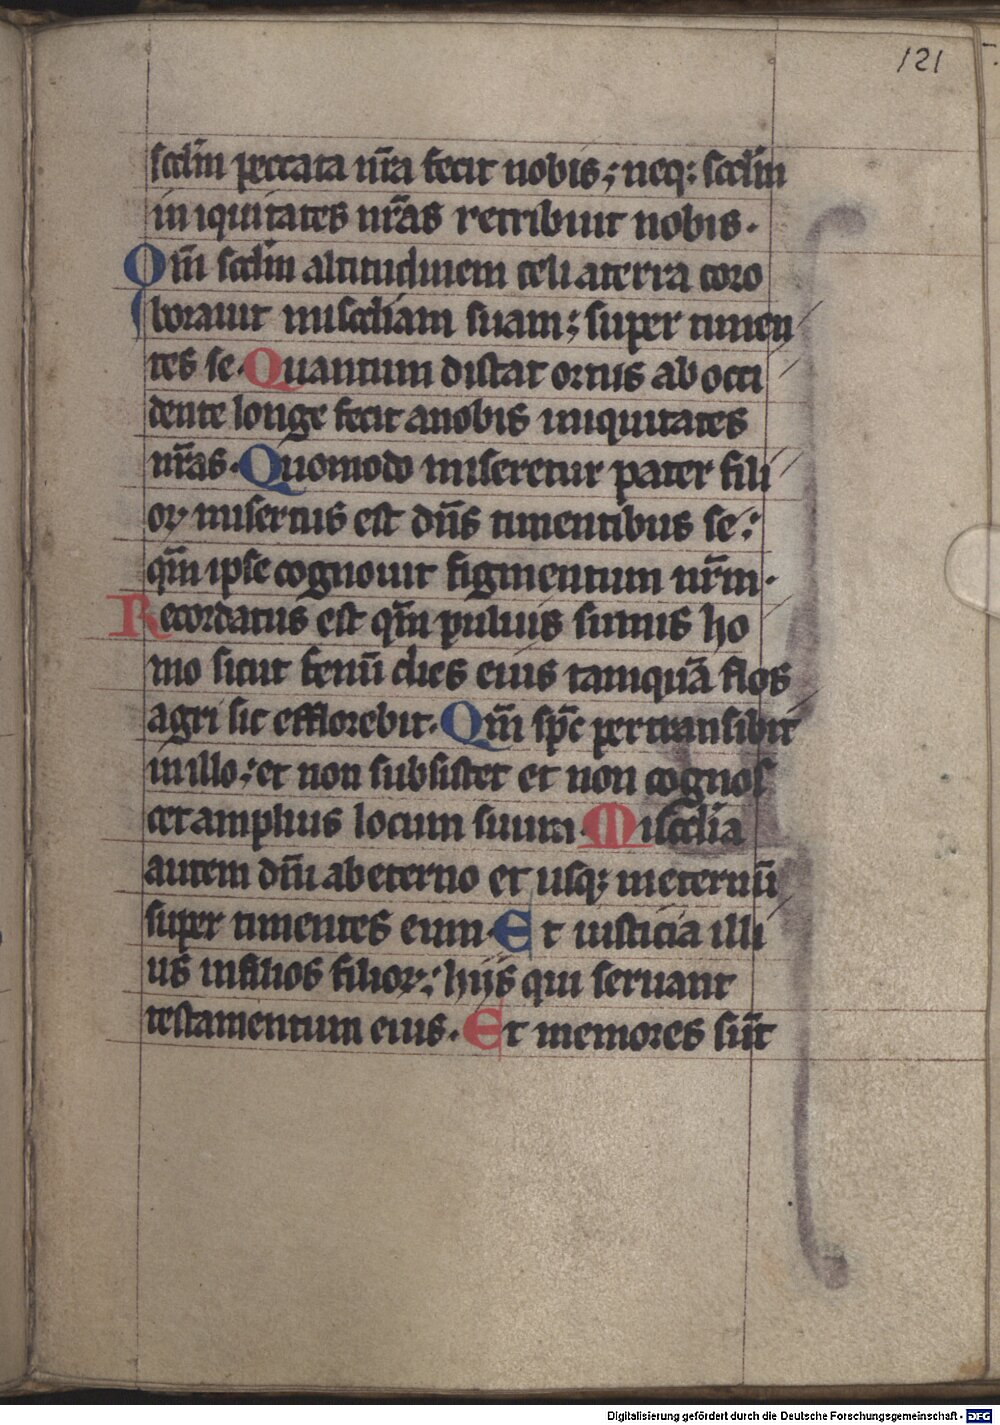 121
scdm peccata nr̄a fecit nobis ; neq; scdm
iniquitates nr̄as retribuit nobis ·
Qm̄ scdm altitudinem celi aterra coro
borauit miscdiam suam ; super timen
tes se · Quantum distat ortus ab occi
dente longe fecit anobis iniquitates
nr̄as · Quomodo miseretur pater fili
oꝝ misertus est dn̄s timentibus se ;
qm̄ ipse cognouit figmentum nr̄m ·
Recordatus est qm̄ puluis sumus ho
mo sicut fenū dies eius tamquā flos
agri sic efflorebit · Qm̄ sp̄c pertransibit
in illo ; et non subsistet et non cognos
cet amplius locum suum · Miscdia
autem dn̄i ab eterno et usq; ineternū
super timentes eum · Et iusticia illi
us infilios filioꝝ ; hijs qui seruant
testamentum eius · Et memores sūt
Digitalisierung gefördert durch die Deutsche Forschungsgemeinschaft - DFG